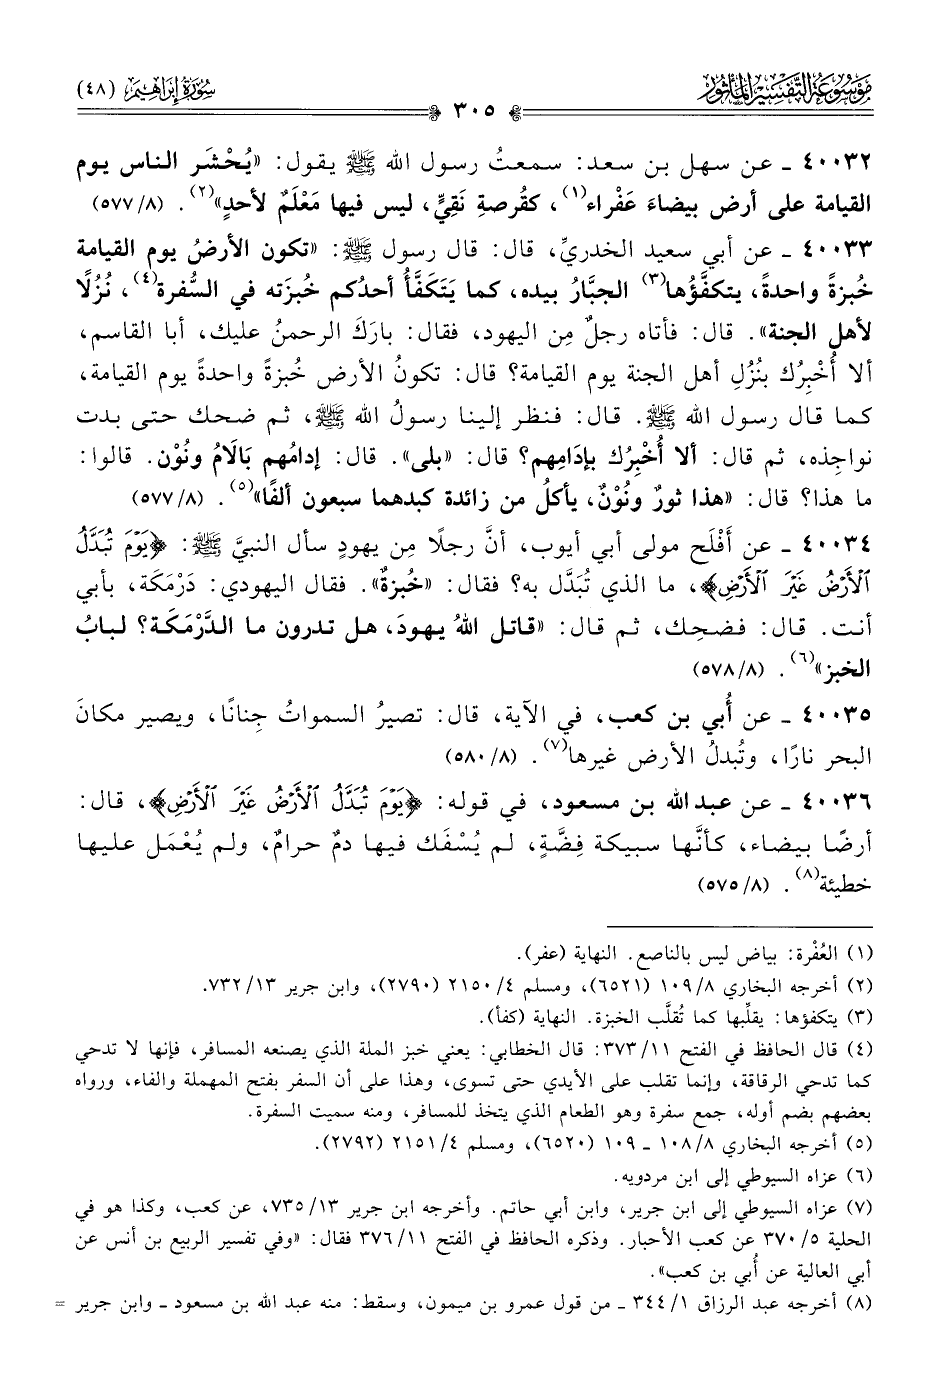 موسوعة التفسير المأثور
٣٠٥
سورة إبراهيم (٤٨)
٤٠٠٣٢ ـ عن سهل بن سعد: سمعتُ رسول الله ﷺ يقول: «يُحْشَر الناس يوم
القيامة على أرض بيضاءَ عَفْراء(١)، كقُرصةِ نَقِيٍّ، ليس فيها مَعْلَمٌ لأحدٍ»(٢). (٥٧٧/٨)
٤٠٠٣٣ ـ عن أبي سعيد الخدريِّ، قال: قال رسول ﷺ: «تكون الأرضُ يوم القيامة
خُبزةً واحدةً، يتكفَّؤُها(٣) الجبَّارُ بيده، كما يَتَكَفَّأُ أحدُكم خُبزَته في السُّفرة(٤)، نُزُلًا
لأهل الجنة». قال: فأتاه رجلٌ مِن اليهود، فقال: بارَكَ الرحمنُ عليك، أبا القاسم،
ألا أُخْبِرُك بنُزُلِ أهل الجنة يوم القيامة؟ قال: تكونُ الأرض خُبزةً واحدةً يوم القيامة،
كما قال رسول الله ﷺ. قال: فنظر إلينا رسولُ الله ﷺ، ثم ضحك حتى بدت
نواجِذه، ثم قال: ألا أُخْبِرُك بإدَامِهم؟ قال: «بلى». قال: إدامُهم بَالَامُ ونُوْن. قالوا:
ما هذا؟ قال: «هذا ثورٌ ونُوْنٌ، يأكلُ من زائدة كبدهما سبعون ألفًا»(٥). (٥٧٧/٨)
٤٠٠٣٤ ـ عن أَفْلَح مولى أبي أيوب، أنَّ رجلًا مِن يهودٍ سأل النبيَّ ﷺ: ﴿يَوْمَ تُبَدَّلُ
ٱلْأَرْضُ غَيْرَ ٱلْأَرْضِ﴾، ما الذي تُبَدَّل به؟ فقال: «خُبزةٌ». فقال اليهودي: دَرْمَكة، بأبي
أنت. قال: فضحِك، ثم قال: «قاتل اللهُ يهودَ، هل تدرون ما الدَّرْمَكَة؟ لبابُ
الخبز»(٦). (٥٧٨/٨)
٤٠٠٣٥ ـ عن أُبي بن كعب، في الآية، قال: تصيرُ السمواتُ جِنانًا، ويصير مكانَ
البحر نارًا، وتُبدلُ الأرض غيرها(٧). (٥٨٠/٨)
٤٠٠٣٦ ـ عن عبد الله بن مسعود، في قوله: ﴿يَوْمَ تُبَدَّلُ ٱلْأَرْضُ غَيْرَ ٱلْأَرْضِ﴾، قال:
أرضًا بيضاء، كأنَّها سبيكة فِضَّةٍ، لم يُسْفَك فيها دمٌ حرامٌ، ولم يُعْمَل عليها
خطيئة(٨). (٥٧٥/٨)
(١) العُفْرة: بياض ليس بالناصع. النهاية (عفر).
(٢) أخرجه البخاري ١٠٩/٨ (٦٥٢١)، ومسلم ٢١٥٠/٤ (٢٧٩٠)، وابن جرير ٧٣٢/١٣.
(٣) يتكفؤها: يقلِّبها كما تُقلَّب الخبزة. النهاية (كفأ).
(٤) قال الحافظ في الفتح ٣٧٣/١١: قال الخطابي: يعني خبز الملة الذي يصنعه المسافر، فإنها لا تدحي
كما تدحي الرقاقة، وإنما تقلب على الأيدي حتى تسوى، وهذا على أن السفر بفتح المهملة والفاء، ورواه
بعضهم بضم أوله، جمع سفرة وهو الطعام الذي يتخذ للمسافر، ومنه سميت السفرة.
(٥) أخرجه البخاري ١٠٨/٨ ـ ١٠٩ (٦٥٢٠)، ومسلم ٢١٥١/٤ (٢٧٩٢).
(٦) عزاه السيوطي إلى ابن مردويه.
(٧) عزاه السيوطي إلى ابن جرير، وابن أبي حاتم. وأخرجه ابن جرير ٧٣٥/١٣، عن كعب، وكذا هو في
الحلية ٣٧٠/٥ عن كعب الأحبار. وذكره الحافظ في الفتح ٣٧٦/١١ فقال: «وفي تفسير الربيع بن أنس عن
أبي العالية عن أُبي بن كعب».
(٨) أخرجه عبد الرزاق ٣٤٤/١ ـ من قول عمرو بن ميمون، وسقط: منه عبد الله بن مسعود ـ وابن جرير =